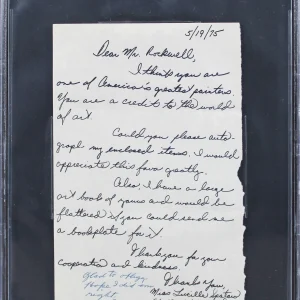 5/19/75
Dear Mr. Rockwell,
I think you are
one of America's greatest painters.
You are a credit to the world
of art.
Could you please auto-
graph my enclosed items. I would
appreciate this favor greatly.
Also I have a large
art book of yours and would be
flattered if you could send me
a bookplate for it.
Thank you for your
cooperation and kindness.
Thank You,
Miss Lucille
Glad to oblige
Hope I did them
right